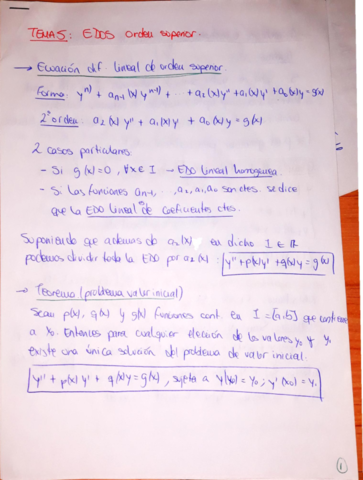 TEMA 5: EDOS orden superior.
→ Ecuación dif. lineal de orden superior
Forma: yⁿ⁾ + aₙ₋₁(x) yⁿ⁻¹⁾ + ... + a₂(x)y'' + a₁(x)y' + a₀(x)y = g(x)
2º orden: a₂(x)y'' + a₁(x)y + a₀(x)y = g(x)
2 casos particulares:
- Si g(x)=0, ∀x∈I → EDO lineal homogénea.
- Si las funciones aₙ₋₁, ..., a₂, a₁, a₀ son ctes. se dice
que la EDO lineal de coeficientes ctes.
Suponiendo que ademas de a₂(x) en dicho I ∈ ℝ
podemos dividir toda la EDO por a₂(x): y''+p(x)y'+q(x)y=g(x)
→ Teorema (problema valor inicial)
Sean p(x), q(x) y g(x) funciones cont. en I=[a,b] que contiene
a x₀. Entonces para cualquier elección de los valores y₀ y y₁
existe una única solución del problema de valor inicial.
y'' + p(x)y' + q(x)y=g(x), sujeta a y(x₀)=y₀; y'(x₀)=y₁
1